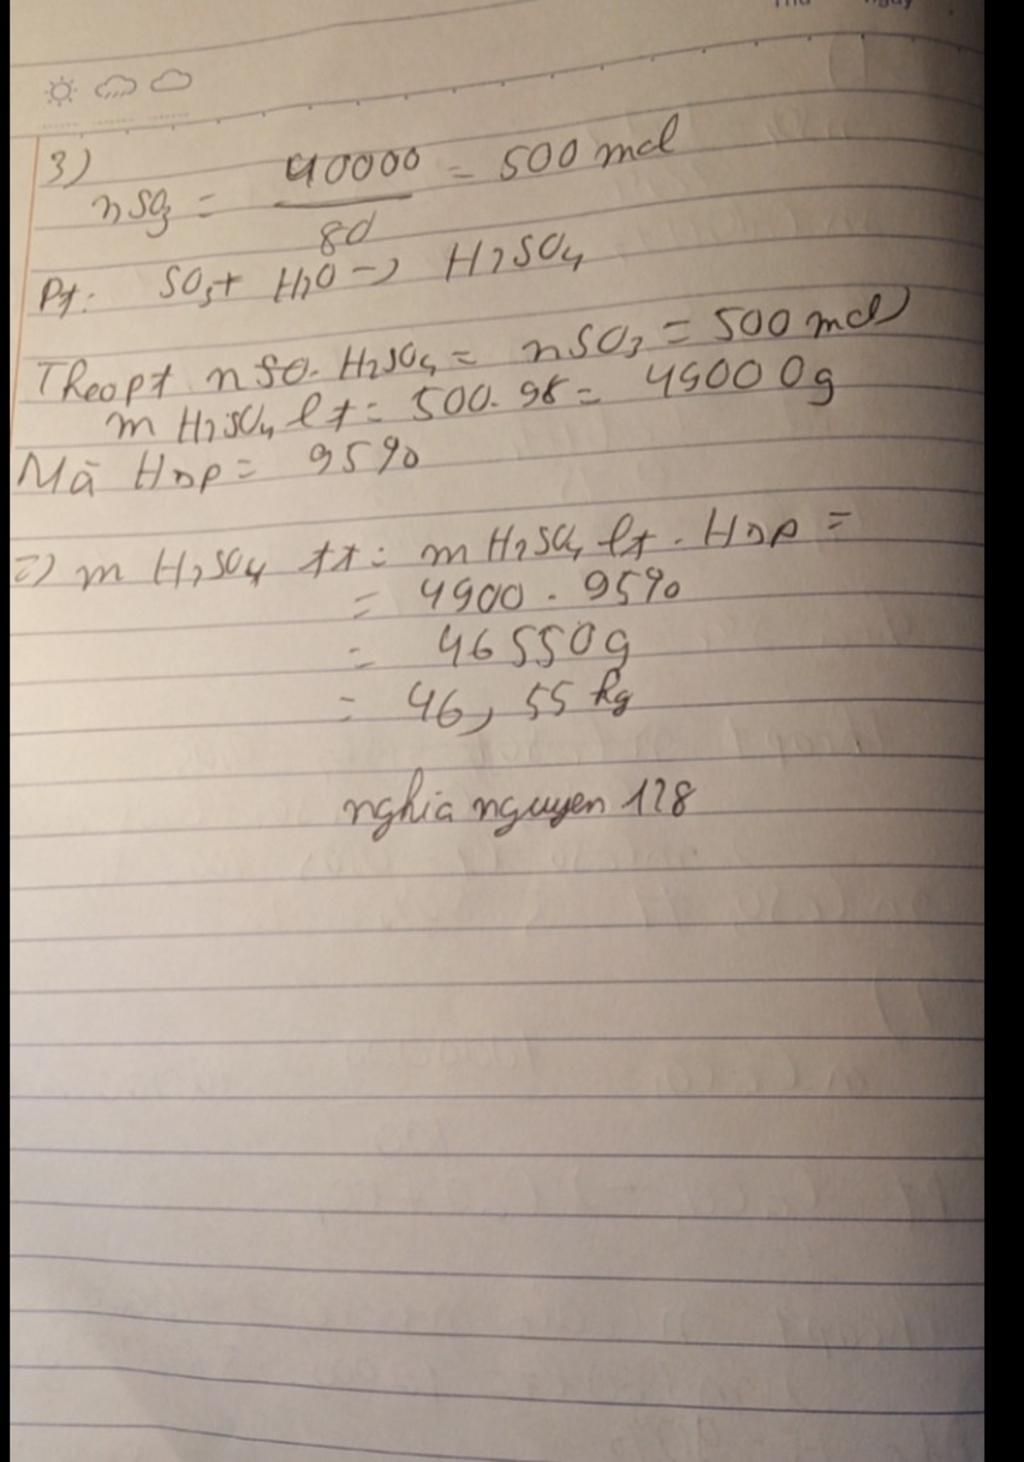 3)
nSO3 = 40000/80 = 500 mol
Pt: SO3 + H2O -> H2SO4
Theo pt nSO. H2SO4 = nSO3 = 500 mol
m H2SO4 lt = 500. 98 = 49000g
Mà Hnp = 95%
=) m H2SO4 tt = m H2SO4 lt . Hnp =
= 4900 . 95%
= 46550g
= 46,55 kg
nghia nguyen 128